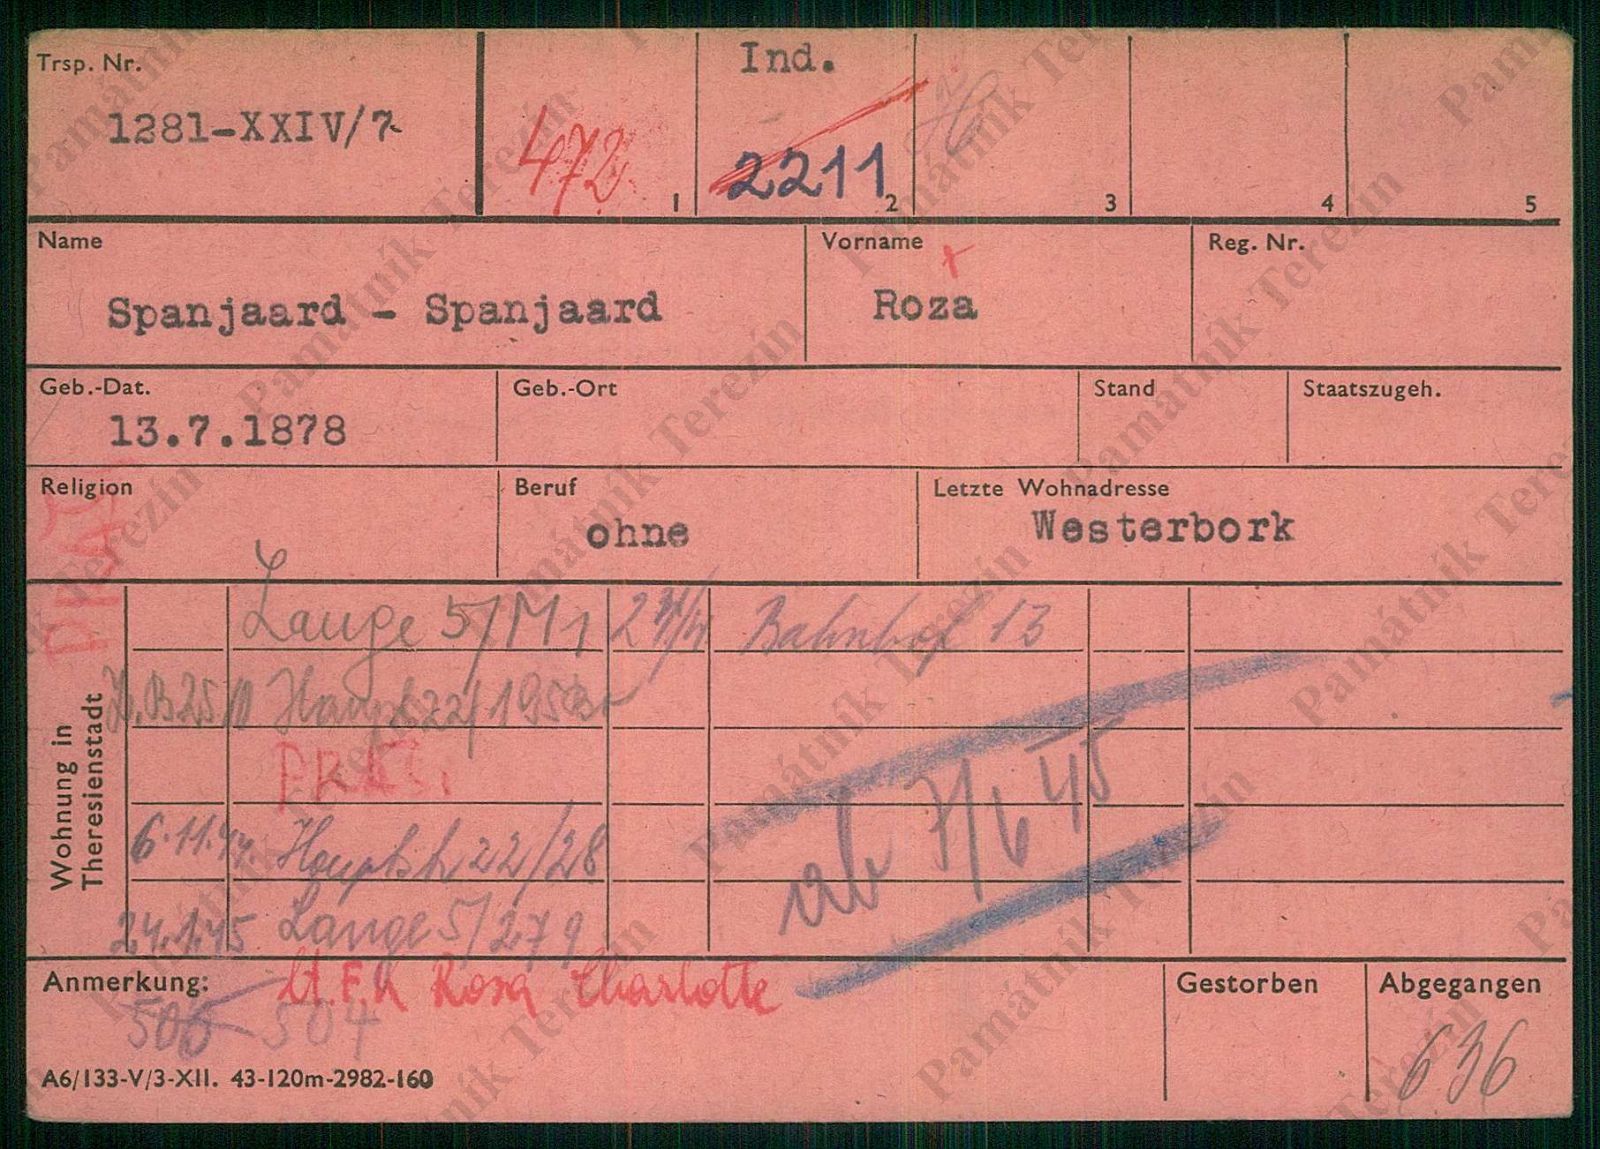 Trsp. Nr.
1281-XXIV/7
472
1
Ind.
2211
2
3
4
5
Name
Spanjaard - Spanjaard
Vorname
Roza
Reg. Nr.
Geb.-Dat.
13.7.1878
Geb.-Ort
Stand
Staatszugeh.
Religion
Beruf
ohne
Letzte Wohnadresse
Westerbork
PRAS
Wohnung in
Theresienstadt
Lange 5/M1
Bahnhof 13
Haupt 22/
PRAS.
ab 7/6 45
6.11.44. Hauptstr 22/28
24.1.45 Lange 5/279
Anmerkung:
lt. E.K Rosa Charlotte
506 504
Gestorben
Abgegangen
636
A6/133-V/3-XII. 43-120m-2982-160
Památník Terezín